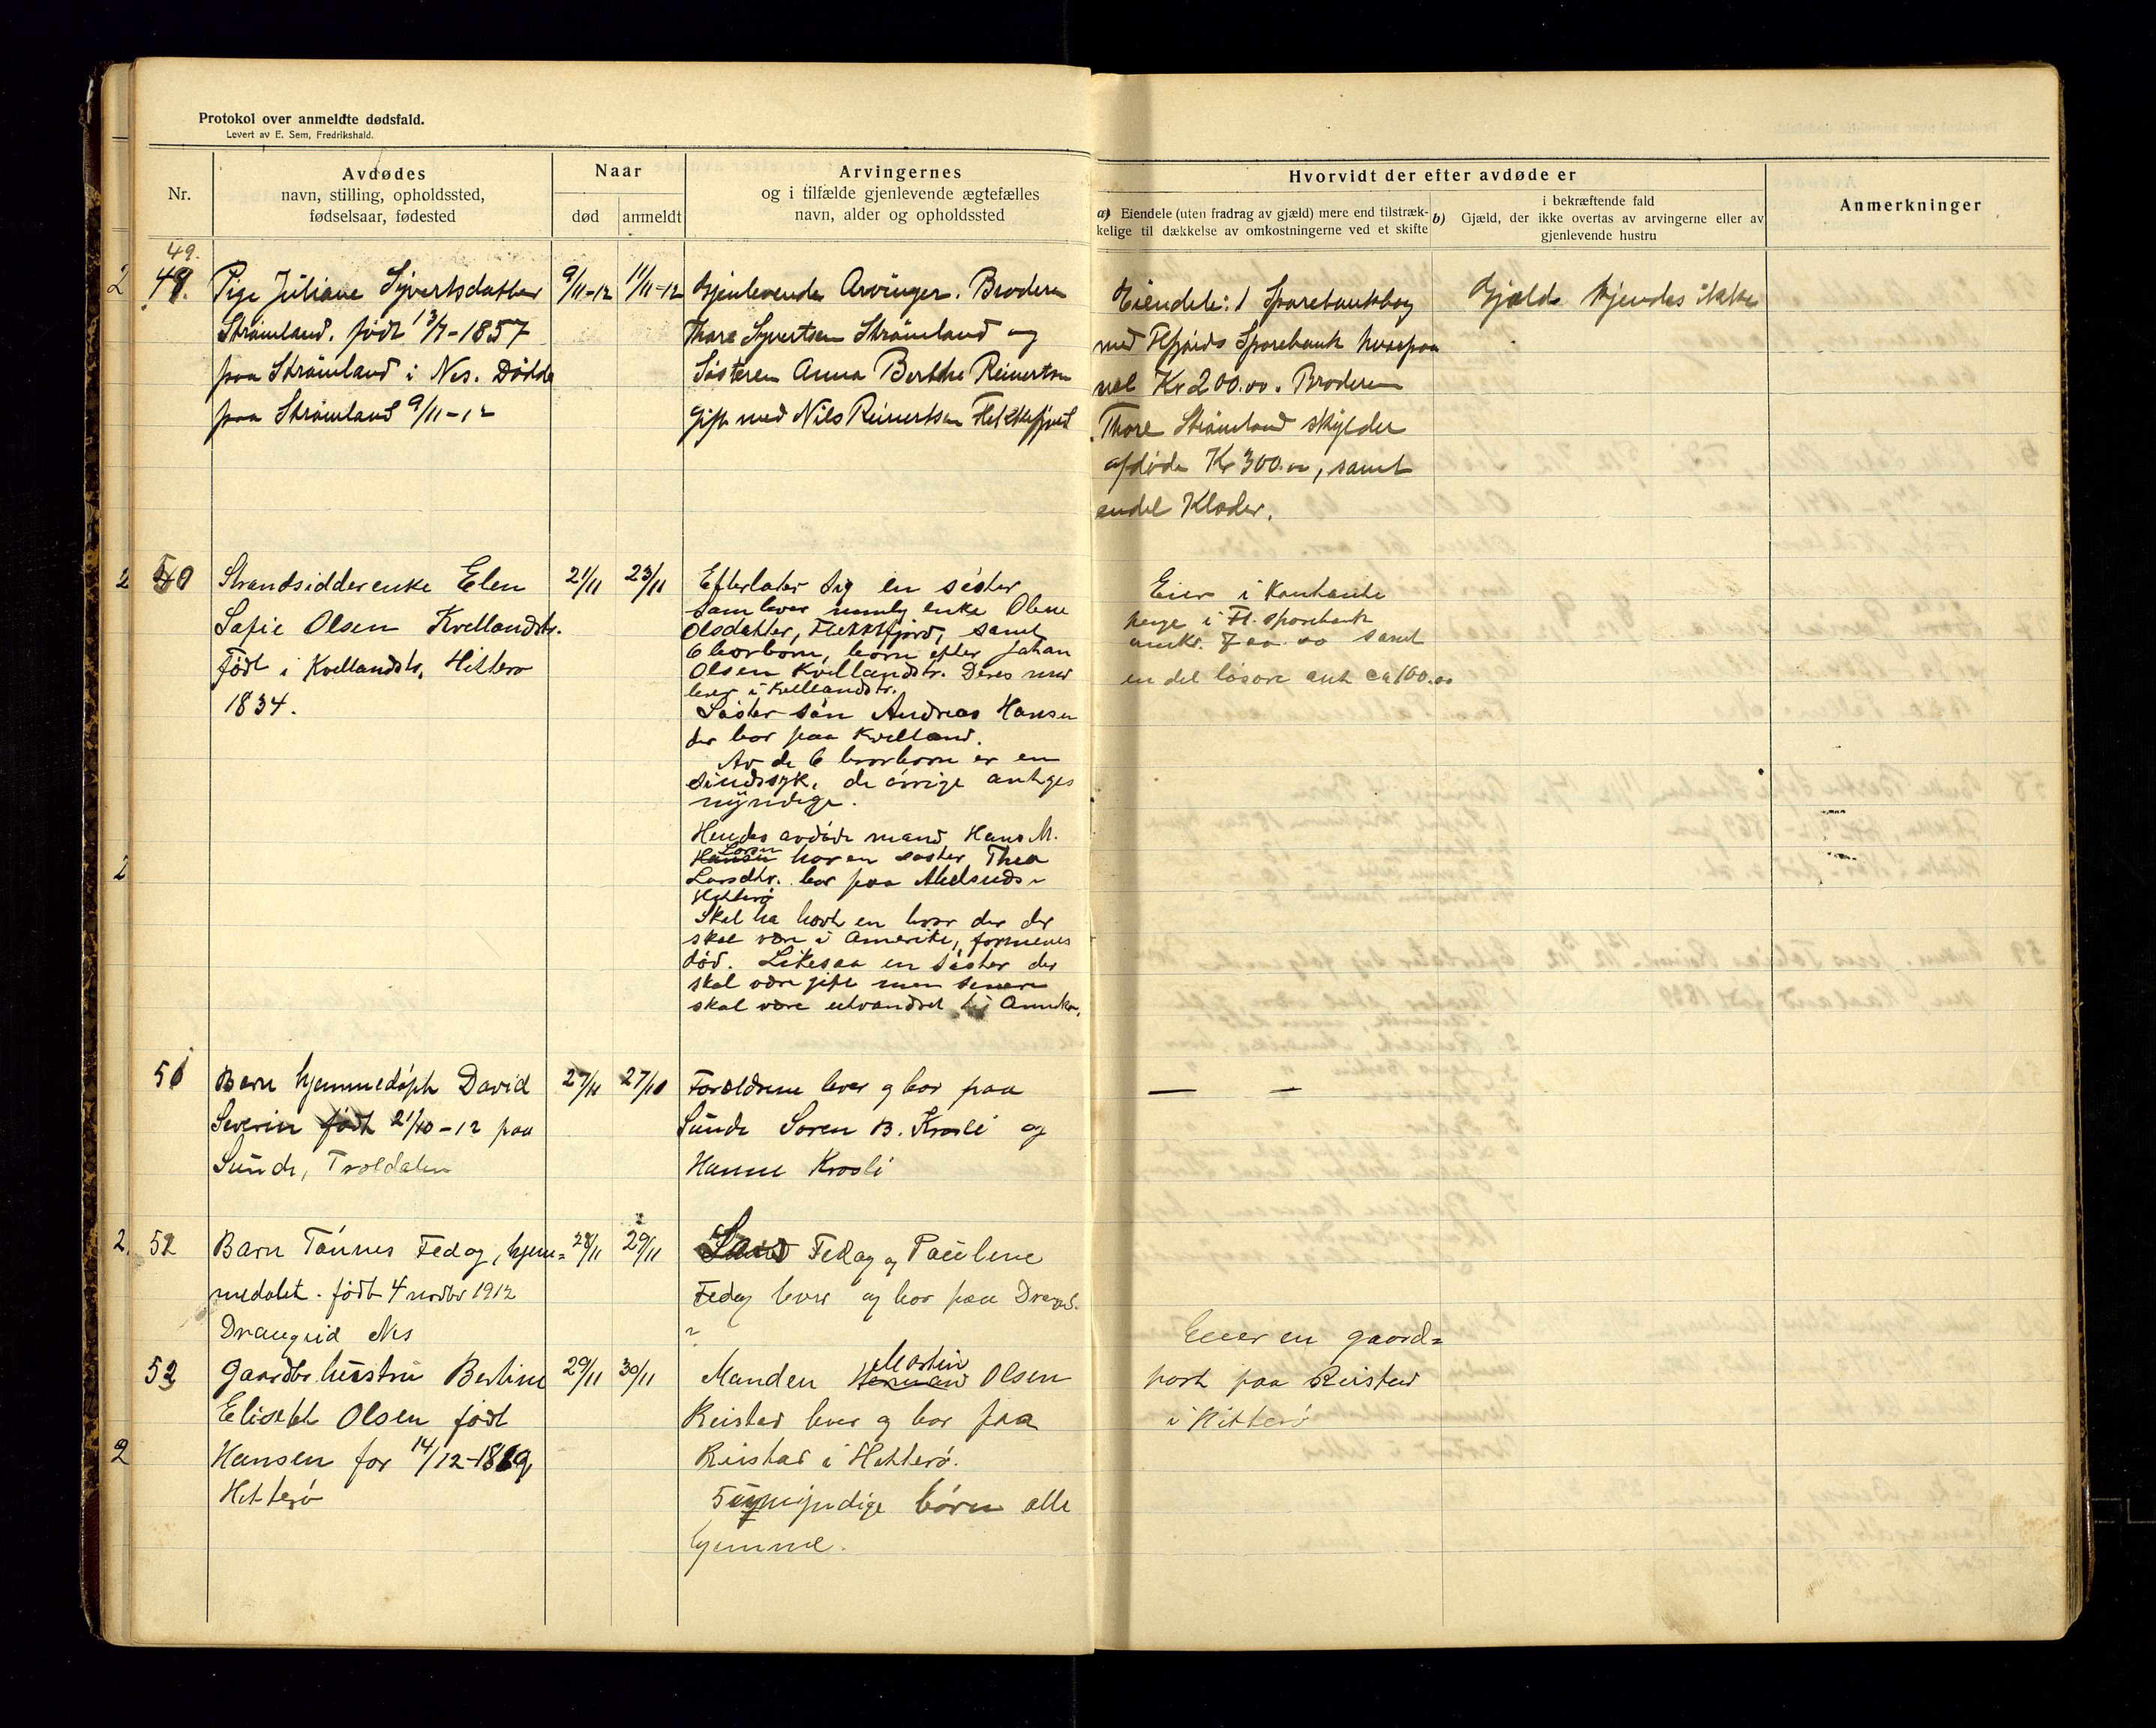 Protokol over anmeldte dødsfald.
Levert av E. Sem, Fredrikshald.
Nr.
Avdødes
navn, stilling, opholdssted,
fødselsaar, fødested
Naar
død
anmeldt
Arvingernes
og i tilfælde gjenlevende ægtefælles
navn, alder og opholdssted
Hvorvidt der efter avdøde er
a) Eiendele (uten fradrag av gjæld) mere end tilstræk-
kelige til dækkelse av omkostningerne ved et skifte
i bekræftende fald
b) Gjæld, der ikke overtas av arvingerne eller av
gjenlevende hustru
Anmerkninger
49.
Pige Juliane Syvertsdatter
Strømland. født 13/7-1857
paa Strømland i Nes. Døde
paa Strømland 9/11-12
9/11-12
11/11-12
Gjenlevende Arvinger. Broderen
Thore Syvertsen Strømland og
Søsteren Anna Berthe Reinertsen
gift med Nils Reinertsen Flekkefjord
Eiendele: 1 Sparebankbog
med Flfjords Sparebank hvorpaa
Kr 200.00. Broderen
Thore Strømland skylder
afdøde Kr 300.00, samt
endel Klæder.
Gjæld kjendes ikke
50
Strandsidderenke Elen
Sofie Olsen Kvellandstr.
født i Kvellandstr. Hitterø
1834.
21/11
23/11
Efterlater sig en søster
som lever nemlig enke Olene
Olsdatter, Flekkefjord, samt
6 brorbørn, børn efter Johan
Olsen Kvellandstr. Deres mor
lever i Kvellandstr.
Søster søn Andreas Hansen
der bor paa Kvelland.
Av de 6 brorbørn er en
sindssyk, de øvrige antages
myndige.
Hendes avdøde mand Hans M.
Larsen
Hansen har en søster Thea
Larsdtr. bor paa
Hitterø
Skal ha havt en bror der der
skal være i Amerika, formenes
død. Likesaa en søster der
skal være gift men senere
skal være utvandret til Amerika.
Eier i kontante
penge i Fl. sparebank
omkr. 700.00 samt
en del løsøre ant ca 100.00
51
Barn hjemmedøpt David
Severin født 21/10-12 paa
Sunde, Troldalen
27/10
27/10
Forældrene lever og bor paa
Sunde Søren B. Krosli og
Hanne Krosli
— —
52
Barn Tønnes Fedog, hjem=
medøbt. født 4 novbr 1912
Drangeid Nes
28/11
29/11
Fedog og Paulene
Fedog lever og bor paa Drangeid.
53
Gaardbr. hustru Berline
Elisebet Olsen født
Hansen for 14/12-1869,
Hitterø
29/11
30/11
Martin
Manden Herman Olsen
Reistad lever og bor paa
Reistad i Hitterø.
5 umyndige børn alle
hjemme.
Eier en gaard=
part paa Reistad
i Hitterø
2
2
2
2
2